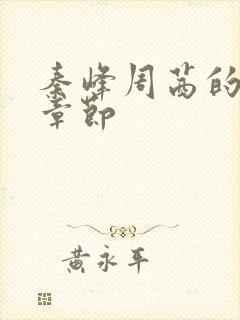 秦峰周茜的
章节
黄永平